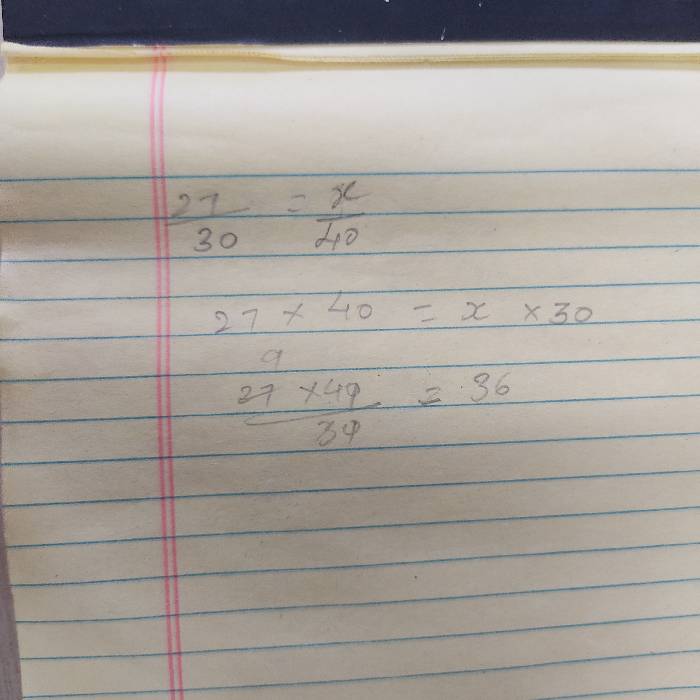 27/30 = x/40
27 × 40 = x × 30
9
27 × 40 / 30 = 36